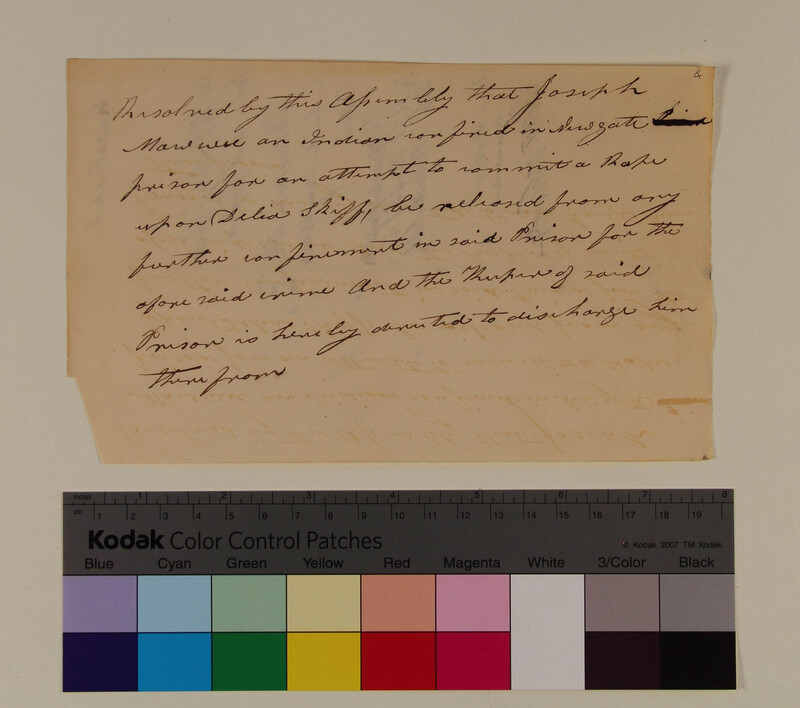 &
Resolved by this Assembly that Joseph
Mawwee an Indian confined in Newgate
prison for an attempt to commit a Rape
upon Delia Skiff, be released from any
further confinement in said Prison for the
afore said crime And the Keeper of said
Prison is hereby directed to discharge him
there from
inches 1 2 3 4 5 6 7 8
cm 1 2 3 4 5 6 7 8 9 10 11 12 13 14 15 16 17 18 19
Kodak Color Control Patches © Kodak, 2007 TM: Kodak
Blue Cyan Green Yellow Red Magenta White 3/Color Black